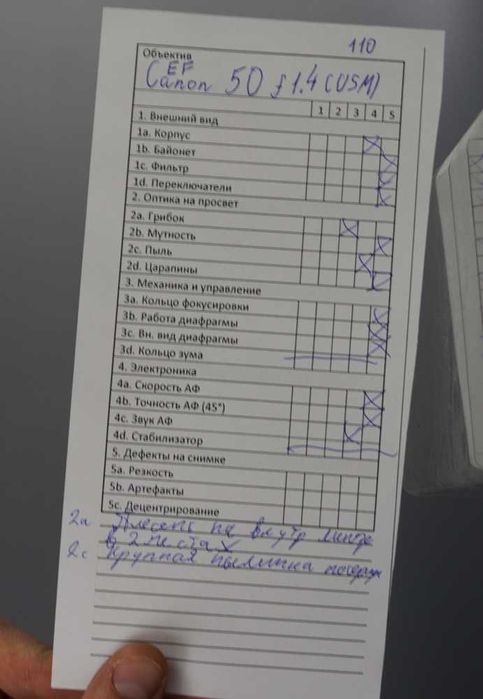 110
Объектив
Canon EF 50 f1.4 (USM)
1 2 3 4 5
1. Внешний вид
1a. Корпус
1b. Байонет
1c. Фильтр
1d. Переключатели
2. Оптика на просвет
2a. Грибок
2b. Мутность
2c. Пыль
2d. Царапины
3. Механика и управление
3a. Кольцо фокусировки
3b. Работа диафрагмы
3c. Вн. вид диафрагмы
3d. Кольцо зума
4. Электроника
4a. Скорость АФ
4b. Точность АФ (45°)
4c. Звук АФ
4d. Стабилизатор
5. Дефекты на снимке
5a. Резкость
5b. Артефакты
5c. Децентрирование
2a Плесень на внутр линзе
в 2 местах
2c Крупная пылинка